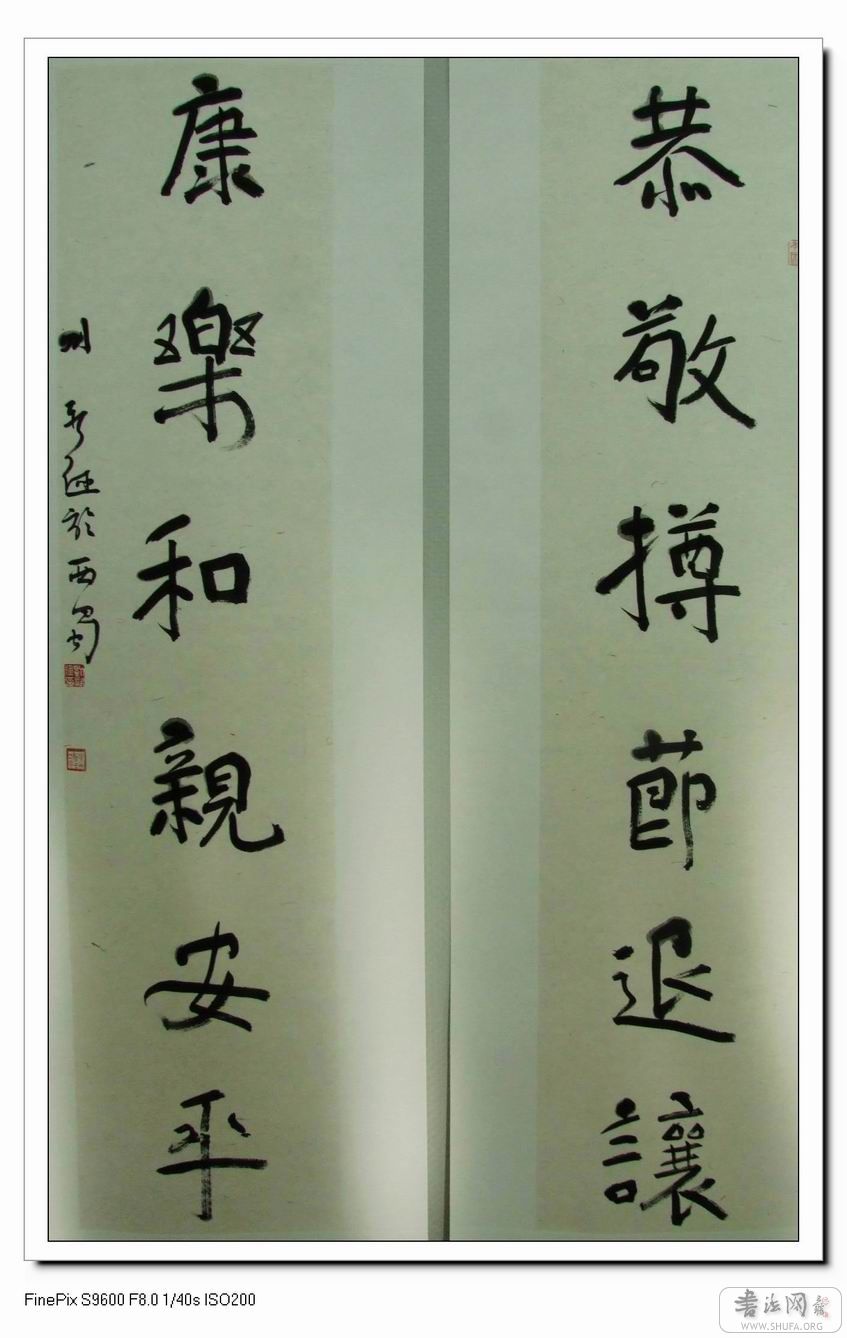 恭敬撙節退讓
康樂和親安平
於西蜀
FinePix S9600 F8.0 1/40s ISO200
書法网
WWW.SHUFA.ORG